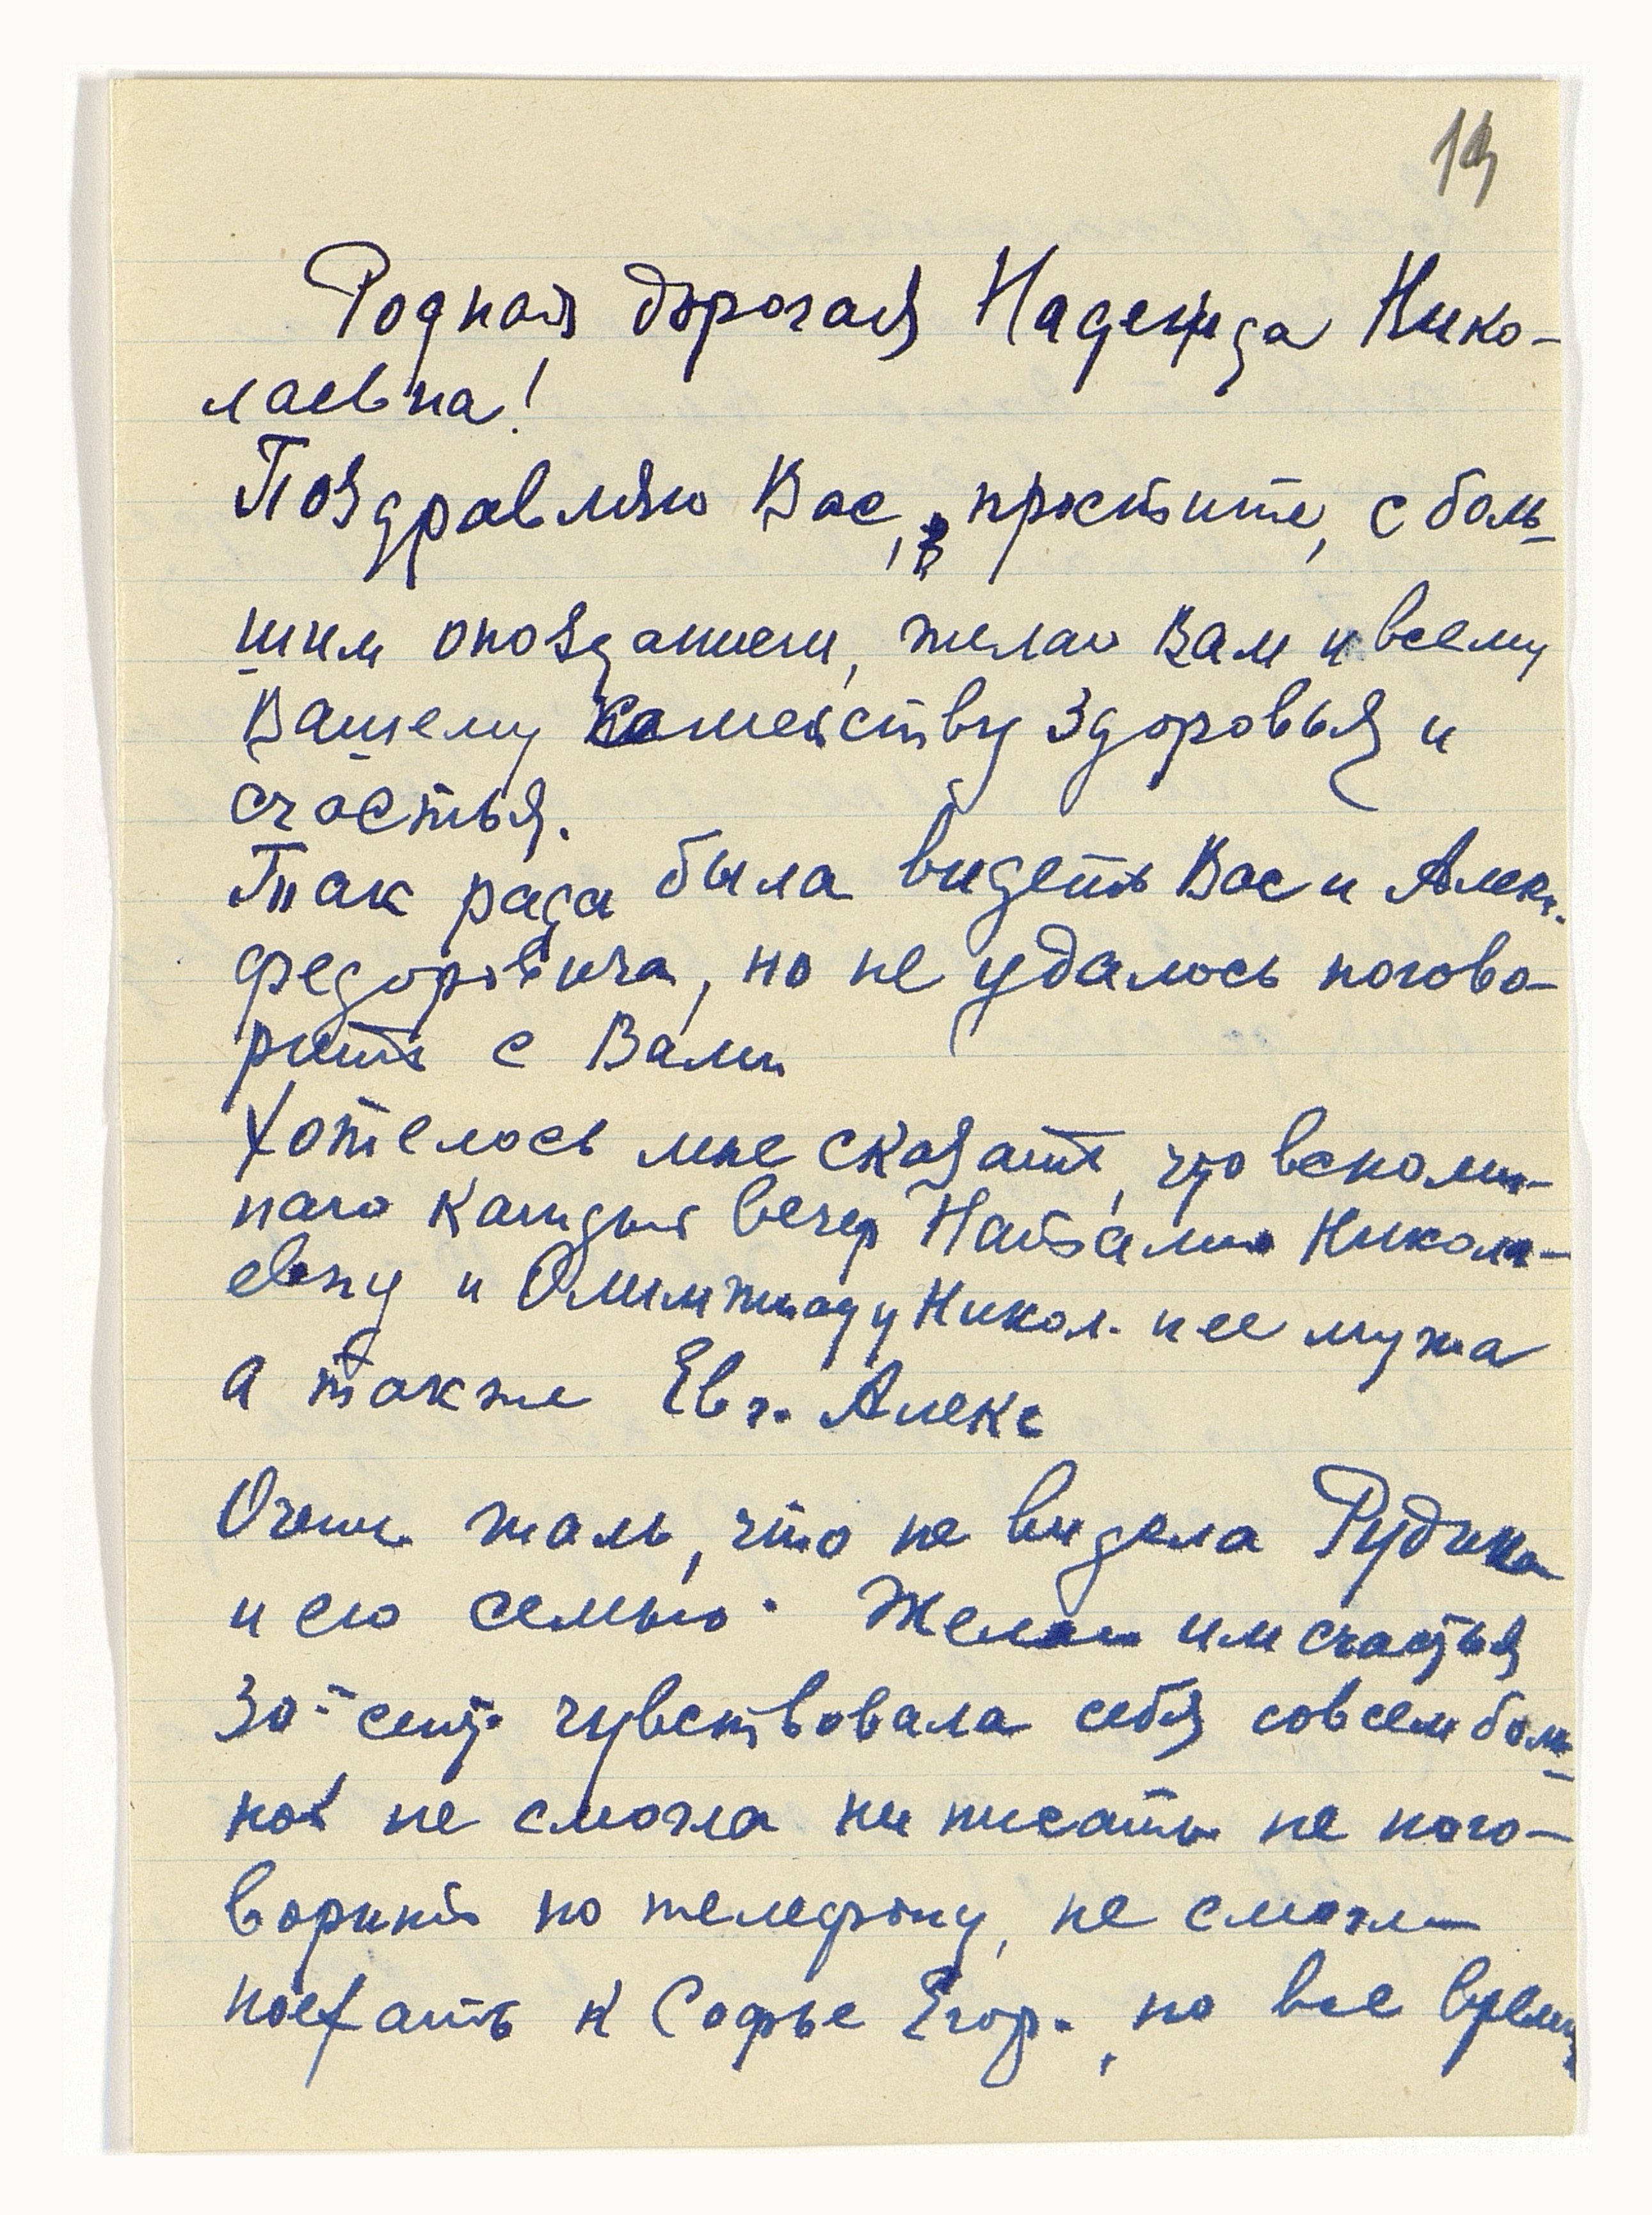 19
Родная дорогая Надежда Нико-
лаевна!
Поздравляю Вас, простите, с боль-
шим опозданием, желаю Вам и всему
Вашему семейству здоровья и
счастья.
Так рада была видеть Вас и Алекс.
Федоровича, но не удалось погово-
рить с Вами
Хотелось мне сказать, что вспоми-
наю каждый вечер Наталию Никола-
евну и Олимпиаду Никол. и ее мужа
а также Евг. Алекс
Очень жаль, что не видела Рудика
и его семью. Желаю им счастья
30-го сент. чувствовала себя совсем боль-
ной не смогла ни писать не пого-
ворить по телефону, не смогла
поехать к Софье Егор., но все время